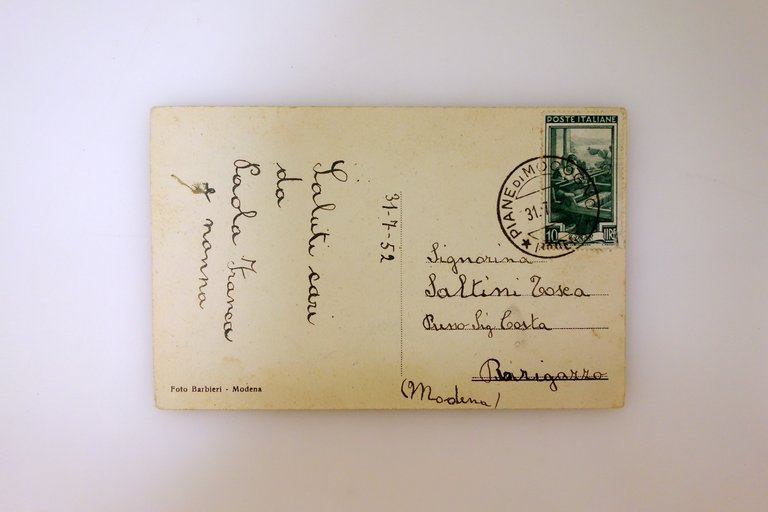 Saluti cari
da
Paola Franca
e nonna
31-7-52
POSTE ITALIANE
10 LIRE
PIANE DI MOCOGNO
31.7
Signorina
Saltini Tosca
Presso Sig Costa
Barigazzo
(Modena)
Foto Barbieri - Modena